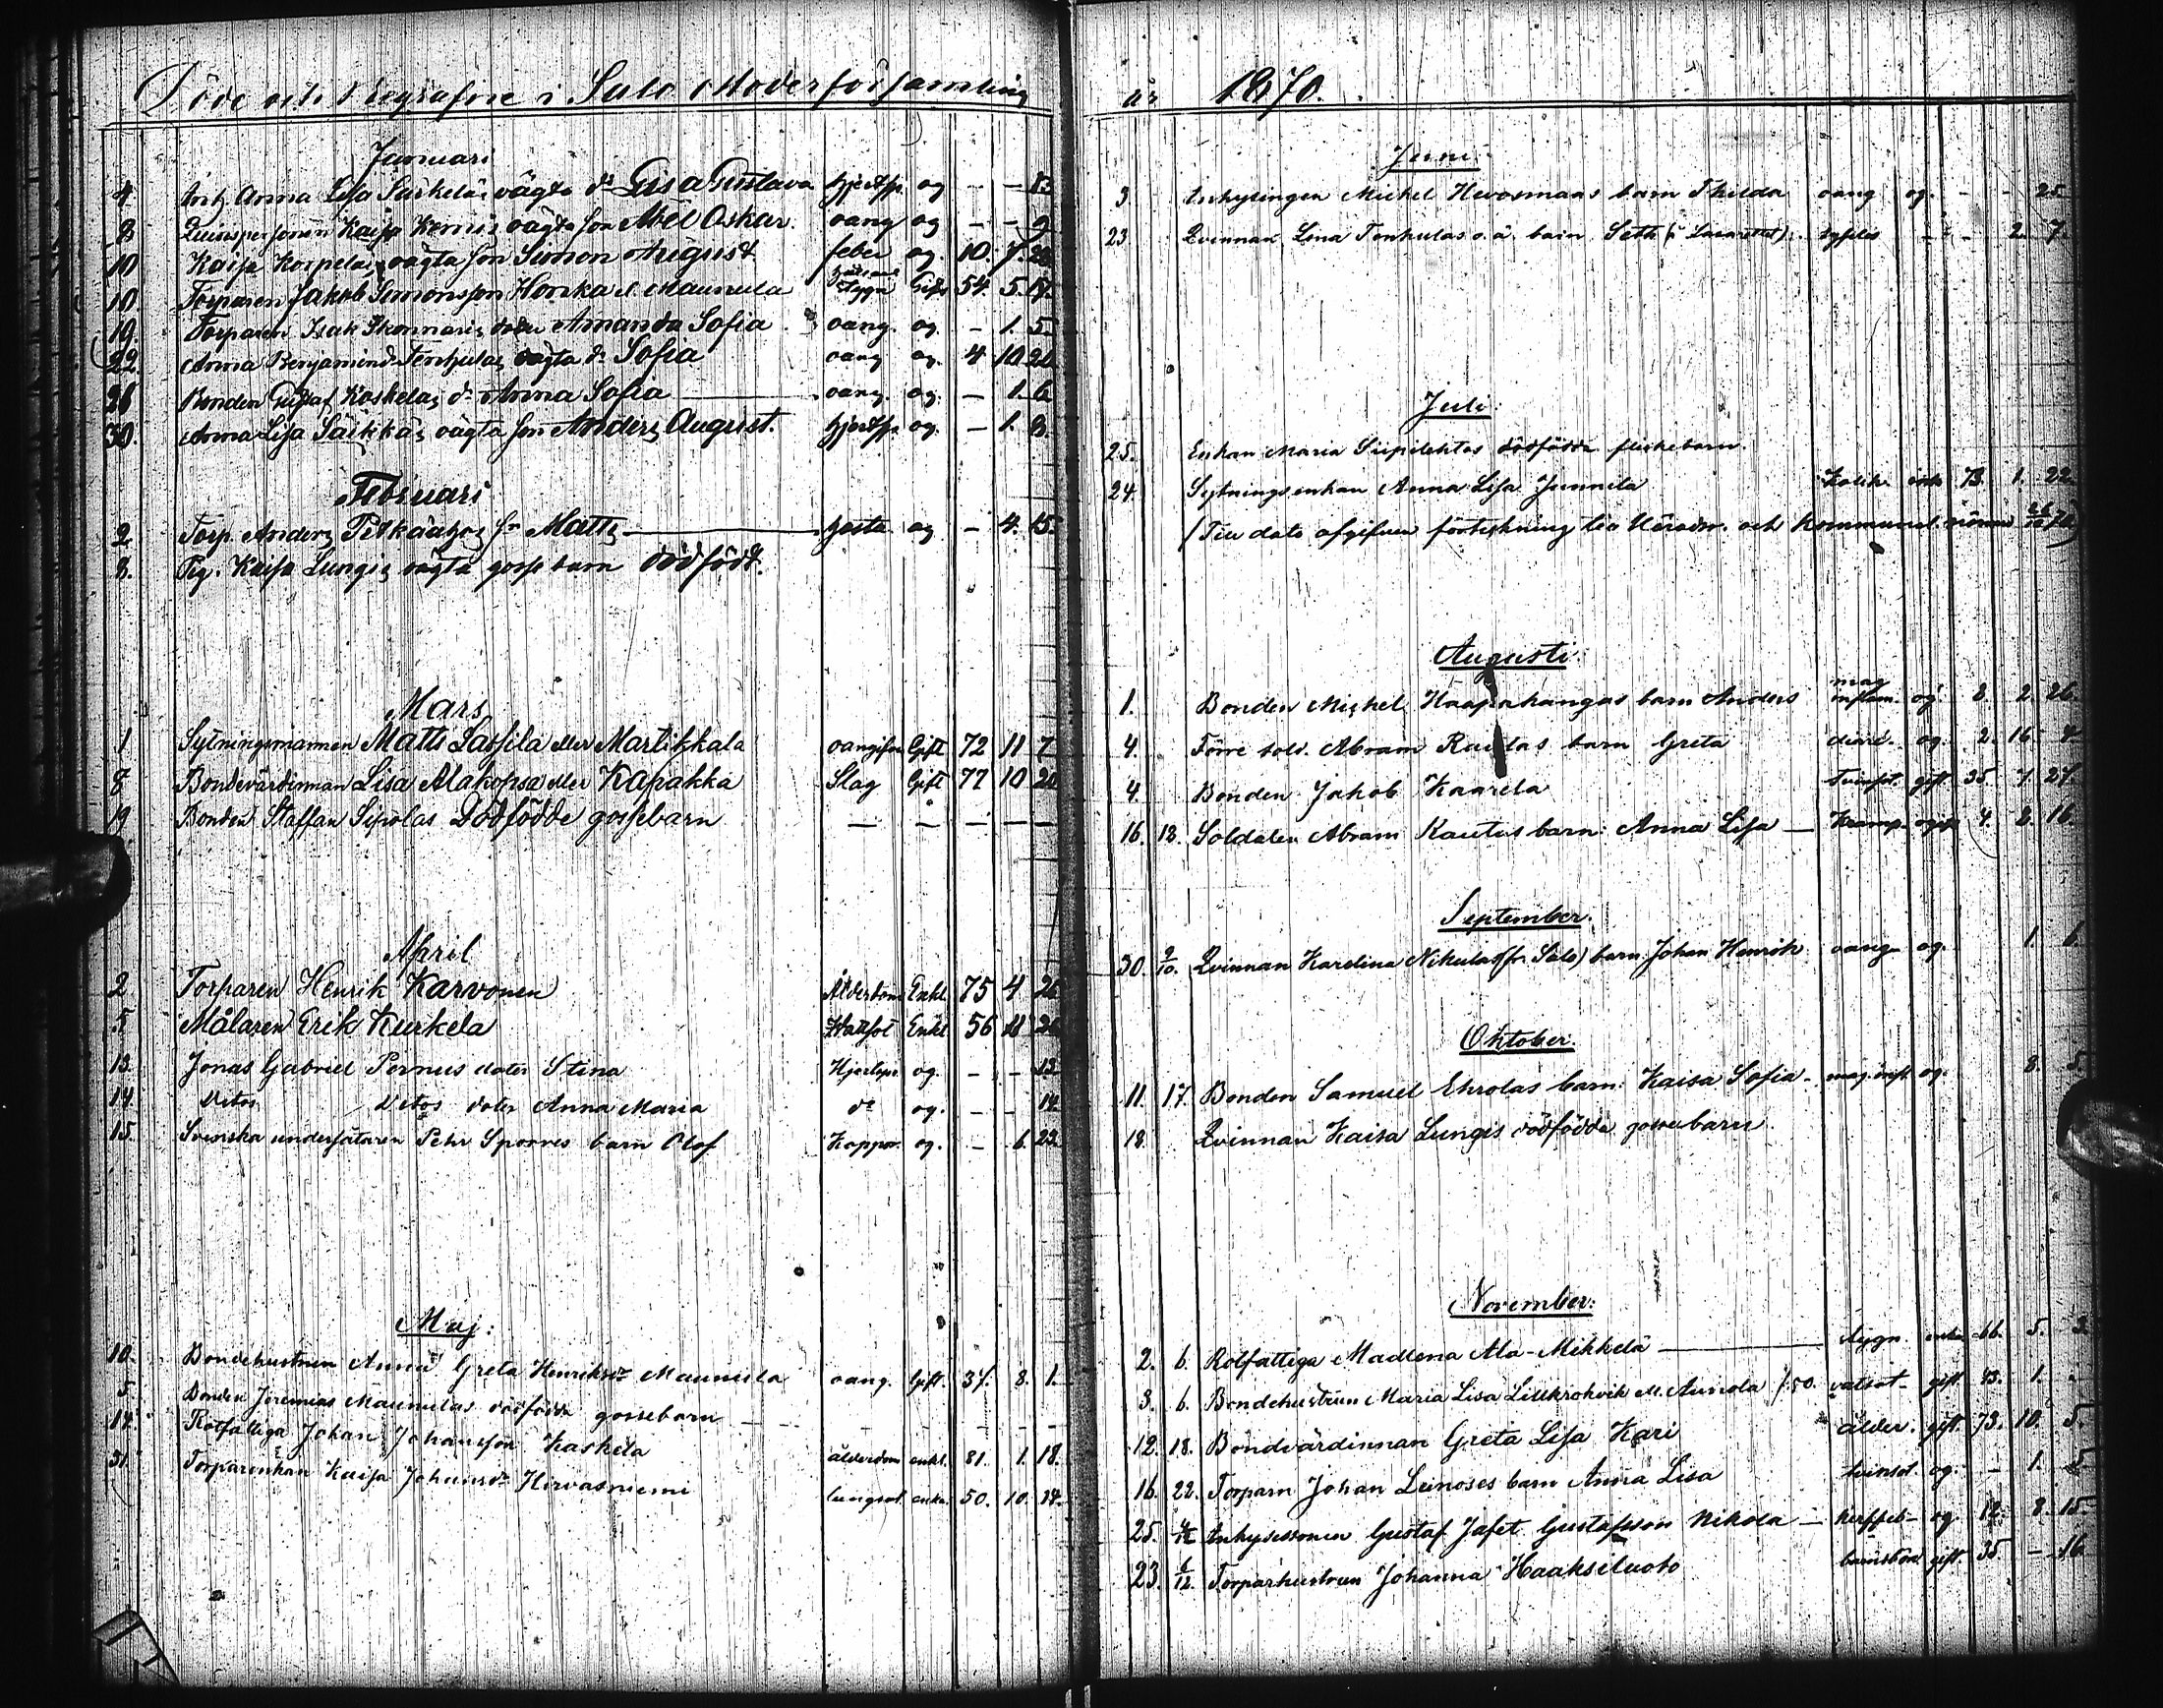 Döde och begrafne i Salo Moderförsamling
Januari
4 Anna Lisa vägta dr Lisa Gustava hjertsp. og – – 13
8 Kaisa vägta son Abel Oskar oang og – – 9
10 Kaisa Korpelas vägta son Simon August feber og. 10. 7. 28
10 Torparen Jakob Simonsson Honka l. Maunula Gift 54. 5. 17.
19. Torparen Isak doter Amanda Sofia oang. og. – 1. 5.
22. Anna Benjamind. Tenhulas vägta dr Sofia oang og. 4 10 20
26 Bonden Gustaf Koskelas dr Anna Sofia oang. og. – 1. 6
30. Anna Lisa Säikkäs vägta son Anders August. hjertsp. og. – 1. 8
Februari
2 Torp. Anders Pitkäahos sn Matts hosta og – 4. 15.
8. Pig. Kaisa Lungis vägta gosse barn dödfödt.
Mars
1 Sytningsmannen Matts Lassila eller Martikkala oangifven Gift 72 11 7
8 Bondevärdinnan Lisa Alakopsa eller Kapakka Slag Gift 77 10 20
19 Bonden Staffan Sipolas Dödfödde gossebarn — — — — —
April
2 Torparen Henrik Karvonen Ålderdom Enkl. 75 4 26
5 Målaren Erik Kurkela Enkl 56 11 26
13. Jonas Gabriel Pernus doter Stina Hjertspr. og. – – 13.
14. Ditos Ditos doter Anna Maria do og. – – 14
15. Svenska undersåtaren Pehr Sporres barn Olof Koppor. og. – 6. 23.
Maj:
10. Bondehustrun Anna Greta Henriksdr Maunula oang. Gift. 37. 8. 1.
5. Bonden Jeremias Maunulas dödfödda gossebarn – – – –
14. Rotfattiga Johan Johansson Kaskela ålderdom enkl. 81. 1. 18.
31. Torparenkan Kaisa Johansdr Hirvasniemi lungsot. enka. 50. 10. 14.
år 1870.
Juni:
3 Inhysingen Michel Hevosmaas barn Thilda oang og. – – 25
23 Qvinnan Lena Tenhulas o.ä. barn Seth (i Lasarettet). syfilis – – 2. 7.
Juli:
25. Enkan Maria Siipilehtos dödfödda flickebarn.
24 Sytningsenkan Anna Lisa Junnila Kolik enk 73. 1. 22.
(Till dato afgifven förteckning till Häradsr. och Kommunal
Augusti:
1. Bonden Michel Haapakangas barn Anders mag inflam. og 8. 2. 26.
4. Förre sold. Abram Rautas barn Greta diaré. og. 2. 16. 4
4. Bonden Jakob Kaarela gift. 35 7. 27.
16. 18. Soldaten Abram Rautas barn: Anna Lisa Kramp ogift 4. 2. 16
September.
30. 9/10. Qvinnan Karolina Nikulas (fr. Salo) barn Johan Henrik oang og. 1. 6
Oktober.
11. 17. Bonden Samuel Ehrolas barn: Kaisa Sofia mag.infl. og. 8. 5.
18. Qvinnan Kaisa Lungis dödfödda gossebarn
November:
2. 6. Rotfattiga Madlena Ala-Mikkelä enka 66. 5. 3.
3. 6. Bondehustrun Maria Lisa Lillkrohvik vatsot gift 43. 1. –
12. 18. Bondvärdinnan Greta Lisa Kari ålder. gift. 73. 10. 5.
16. 22. Torparn Johan Leinoses barn Anna Lisa og. – 1. 5
25. 4/12 Inhysessonen Gustaf Jafet Gustafsson Nikola og 12. 8. 15.
23. 6/12. Torparhustrun Johanna Haaksiluoto barnsbörd gift. 35 – 16.